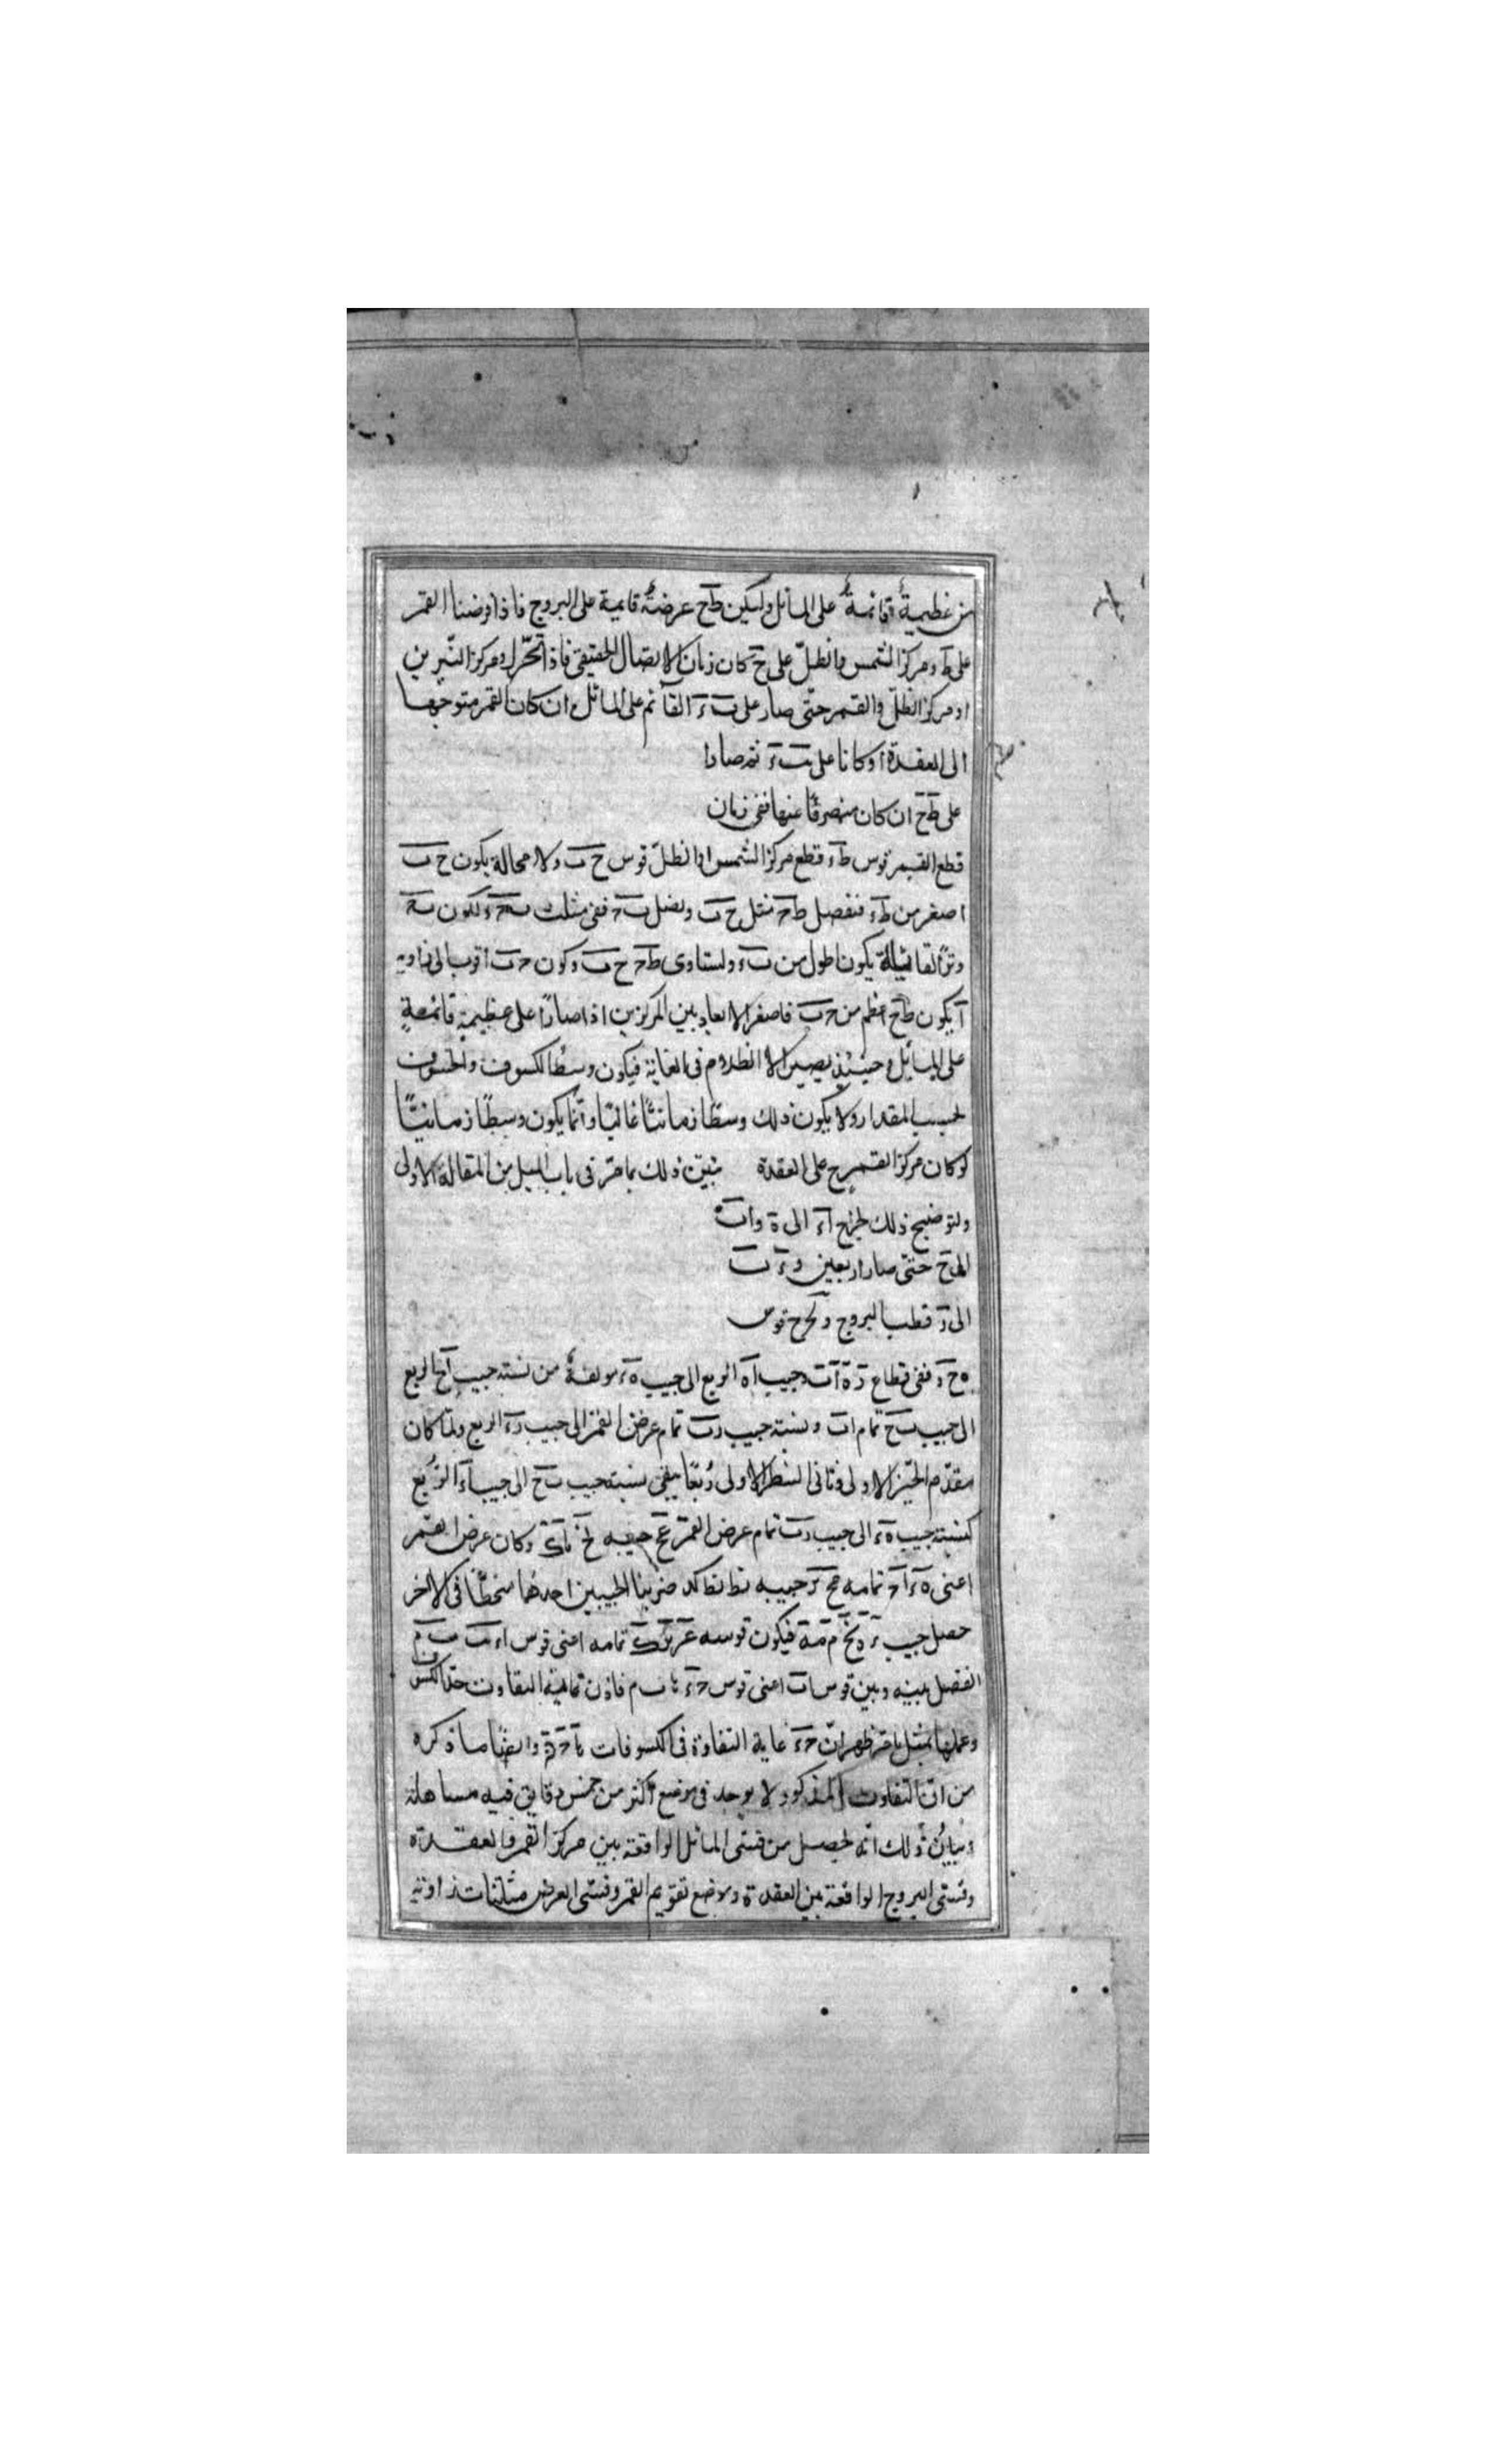 من عظيمة قائمة على المائل وليكن طح عرضية قايمة على البروج فاذا فرضنا القمر
على ط ومركز الشمس والظل على ح كان زمان الاتصال الحقيقى فاذا تحرك ومركز النيرين
او مركز الظل والقمر حتى صار على ب ء القائم على المائل ان كان القمر متوجها
الى العقدة او كانا على ب ء ثم صارا
على طح ان كان منصرفا عنها ففى زمان
قطع القمر قوس طء قطع مركز الشمس او الظل قوس ح ب ولا محالة يكون ح ب
اصغر من طء فنفصل ط ح مثل ح ب ونصل ب ح ففى مثلث لكون
وتر القائمة يكون اطول من ب ء ولتساوى ط ح ح ب وكون ح ب اقرب الى زاوية
آ يكون طح اعظم من ح ب فاصغر الابعاد بين المركزين اذا صارا على عظيمة قائمة
على المائل وحينئذ يصير الانظلام فى الغاية فيكون وسط الكسوف والخسوف
بحسب المقدار ولا يكون ذلك وسطا زمانيا غالبا وانما يكون وسطا زمانيا
لو كان مركز القمر ح على العقدة نبين ذلك بما مر فى باب الميل من المقالة الاولى
ولتوضيح ذلك نخرج اء الى ه واب
الى ح حتى صارا ربعين وء ب
الى ر قطب البروج ونخرج قوس
ه ح ر ففى قطاع ر ه ا ب جيب اه الربع الى جيب ه ء مولفة من نسبة جيب اح الربع
الى جيب ب ح تمام اب ونسبة جيب رب تمام عرض القمر الى جيب رء الربع ولما كان
مقدم الحيز الاولى وثانى الشطر الاولى ربعا يبقى نسبة جيب ب ح الى جيب اء الربع
كنسبة جيب ه ء الى جيب رب تمام عرض القمر جيبه وكان عرض القمر
اعنى تمامه جيبه نط نط كد ضربنا الجيبين احدهما منحطا فى الاخر
حصل جيب فيكون قوسه تمامه اعنى قوس اء
الفضل بينه وبين قوس اب اعنى قوس ح ء فاذن نهاية التفاوت حد الكسوف
وعملها بمثل ما مر ظهر ان ح ء غاية التفاوت فى الكسوفات وايضا ما ذكره
من ان التفاوت المذكور لا يوجد فى موضع اكثر من خمس دقايق فيه مساهلة
وبيان ذلك انه يحصل من قسى المائل الواقعة بين مركز القمر والعقدة
وقسى البروج الواقعة بين العقدة وموضع تقويم القمر وقسى العرض مثلثات زاوية